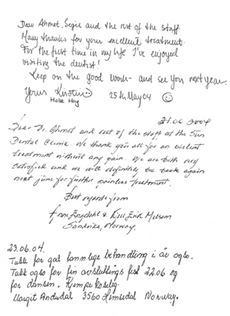 Dear Ahmet, Segie and the rest of the staff
Many thanks for your excellent treatment.
For the first time in my life I've enjoyed
visiting the dentist!
Keep on the good work - and see you next year
Yours
25th May 04
21.06 2004
Dear Dr. Ahmet and rest of the staff at the Sun
Dental Clinic. We thank you all for an excellent
treatment without any pain. We are both very
satisfied and we will definitely be back again
next june for further painless treatment.
Best regards from
Norway
23.06.04.
Takk for god tannlege behandling i år også.
Takk også for fin avslutningsfest 22.06 og
for dansen. Kjempe koselig.
Margit 3560 Hemsedal Norway.